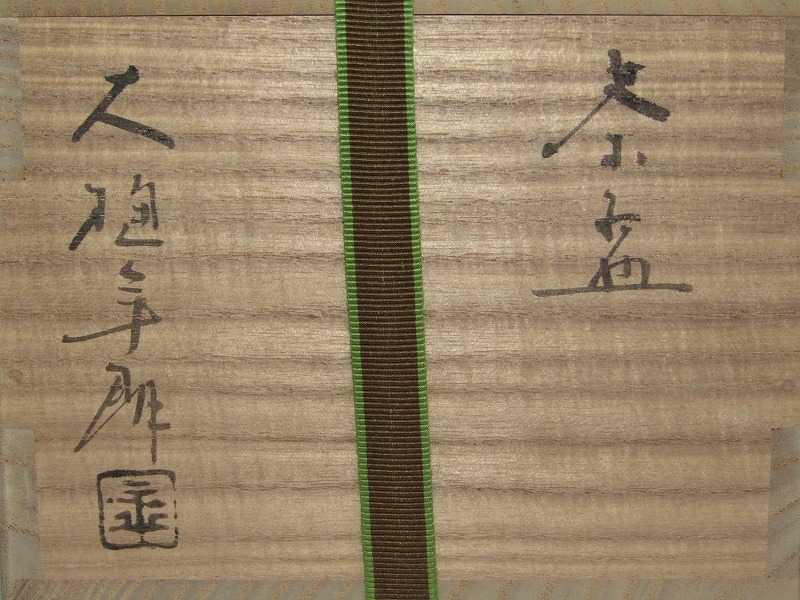 茶盌
大樋年朗